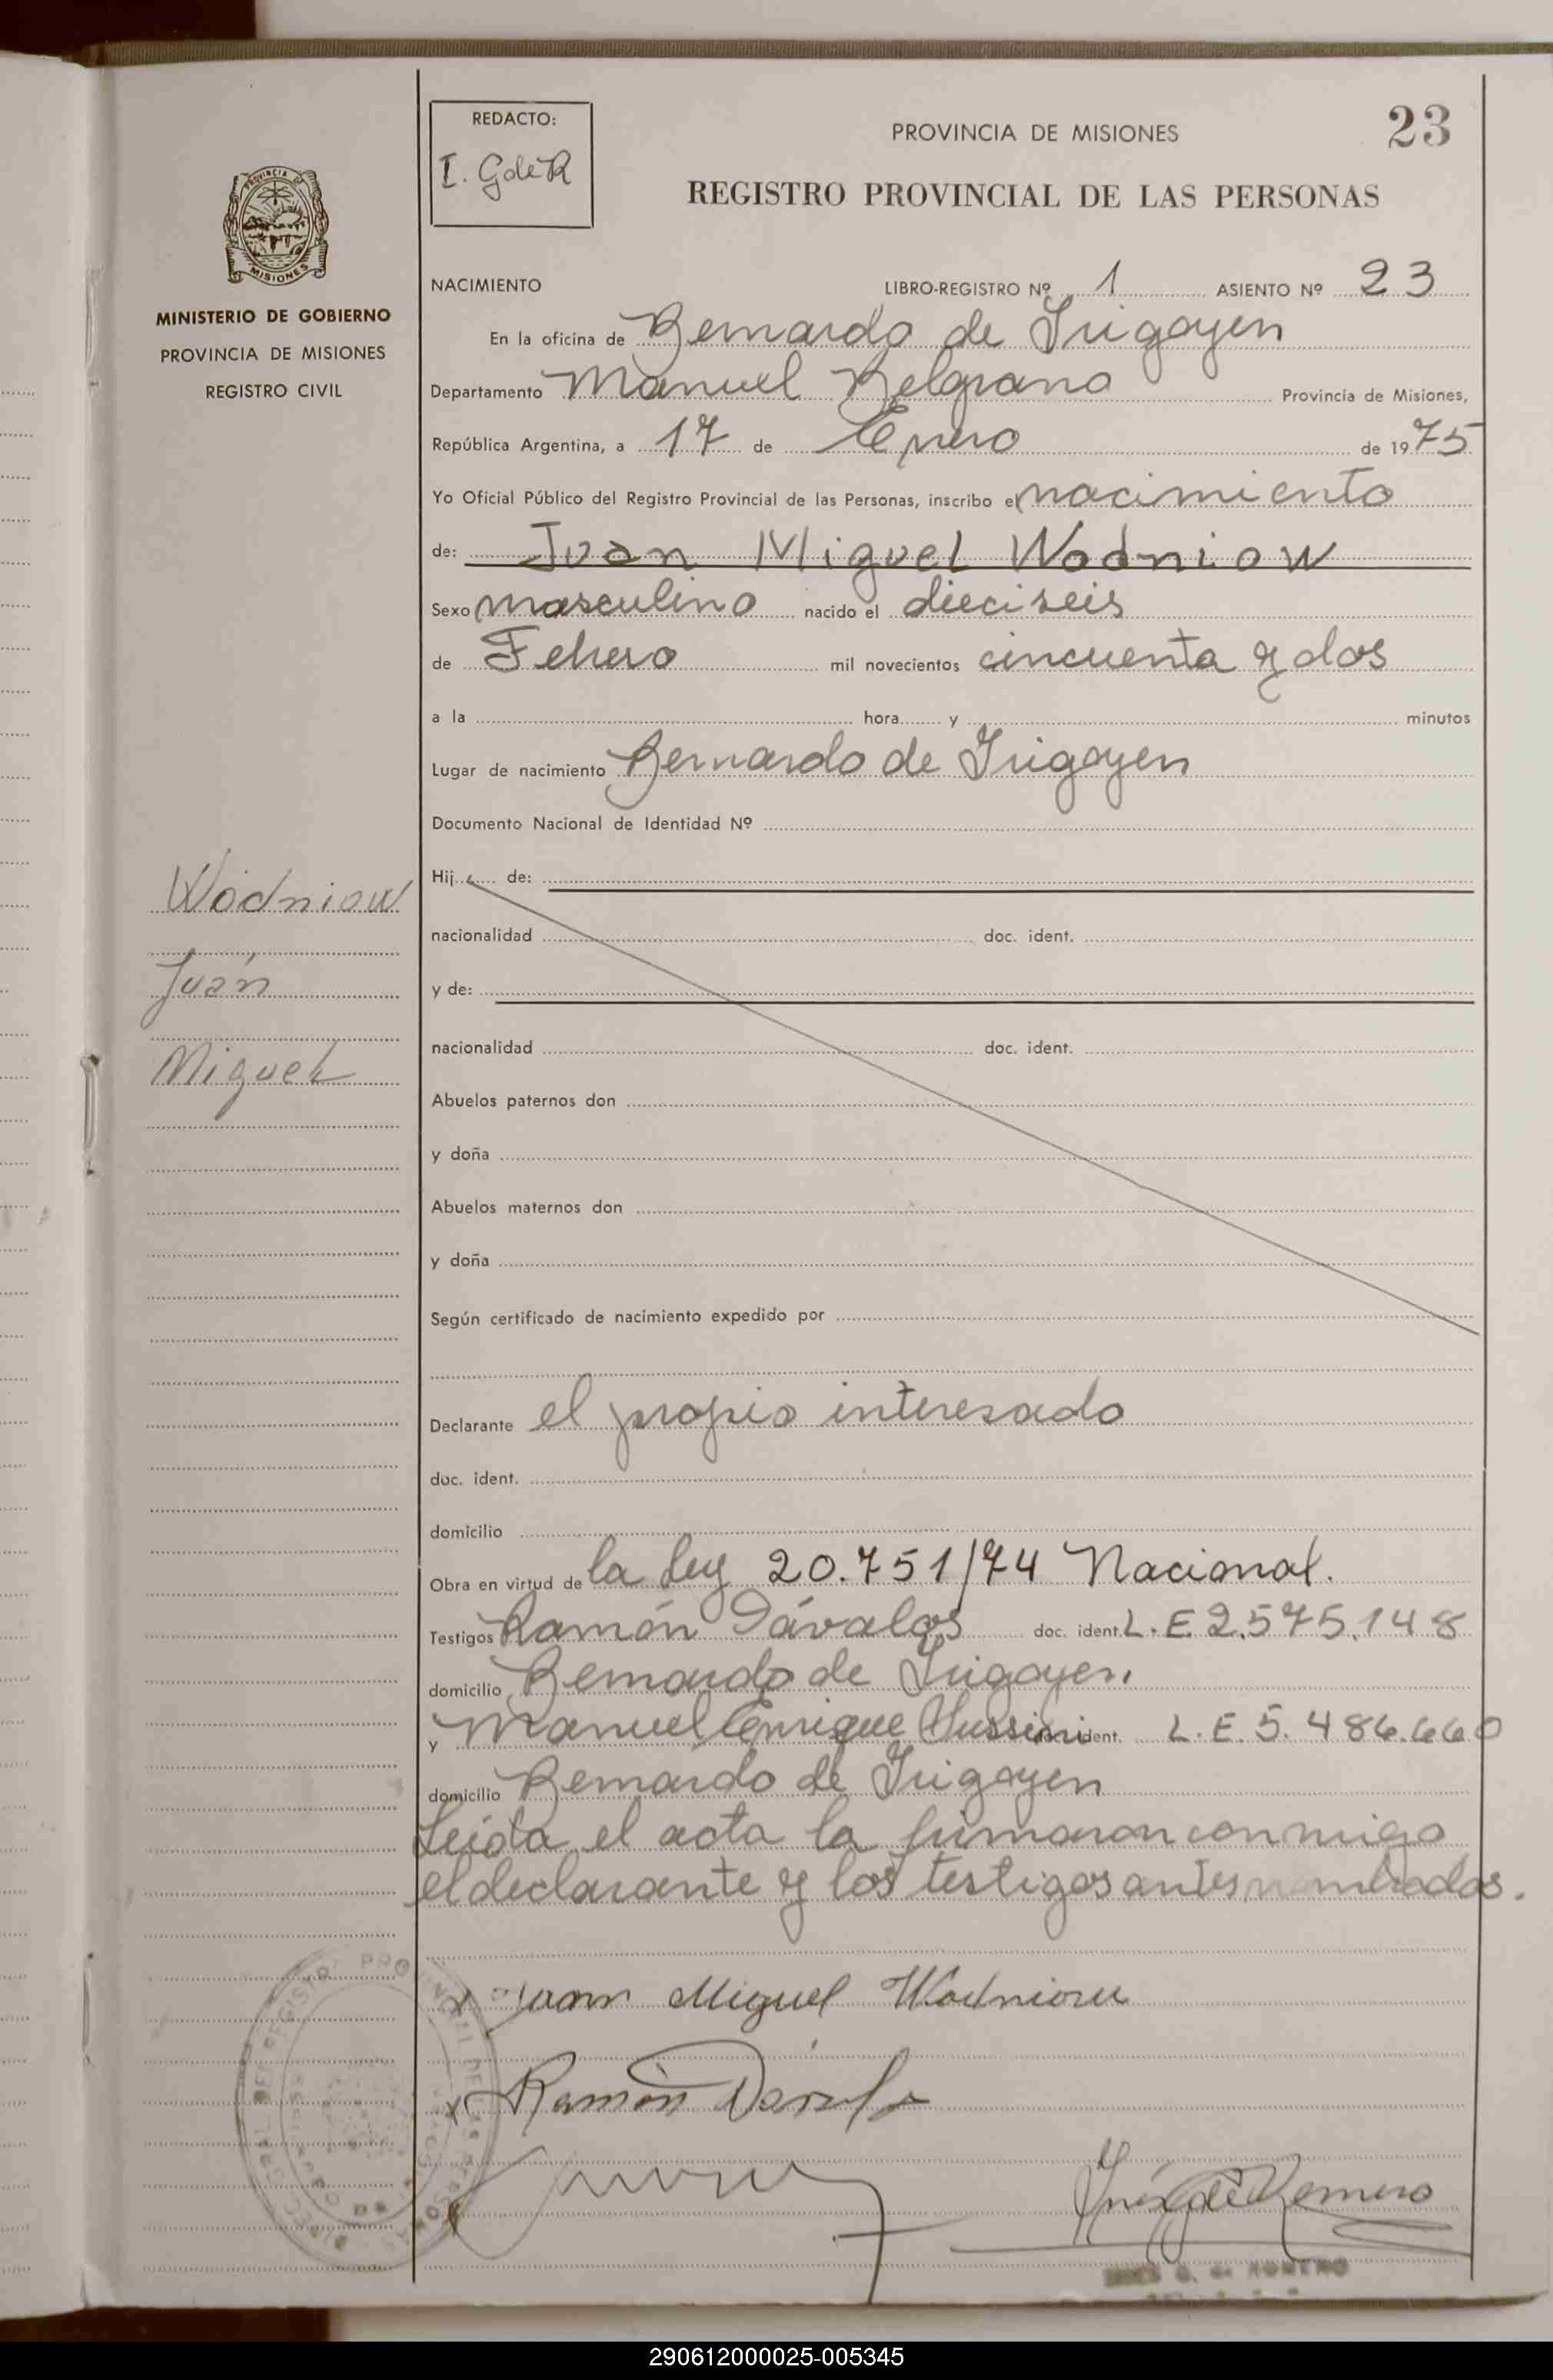 REDACTO:
I. GdeR
PROVINCIA DE MISIONES
23
REGISTRO PROVINCIAL DE LAS PERSONAS
MISIONES
MINISTERIO DE GOBIERNO
PROVINCIA DE MISIONES
REGISTRO CIVIL
NACIMIENTO LIBRO-REGISTRO Nº 1 ASIENTO Nº 23
En la oficina de Bernardo de Irigoyen
Departamento Manuel Belgrano Provincia de Misiones,
República Argentina, a 17 de Enero de 1975
Yo Oficial Público del Registro Provincial de las Personas, inscribo el nacimiento
de: Juan Miguel Wodniow
Sexo masculino nacido el dieciseis
de Febrero mil novecientos cincuenta y dos
a la hora y minutos
Lugar de nacimiento Bernardo de Irigoyen
Documento Nacional de Identidad Nº
Wodniow
Juan
Miguel
Hij de:
nacionalidad doc. ident.
y de:
nacionalidad doc. ident.
Abuelos paternos don
y doña
Abuelos maternos don
y doña
Según certificado de nacimiento expedido por
Declarante el propio interesado
doc. ident.
domicilio
Obra en virtud de la Ley 20.751/74 Nacional.
Testigos Ramón Dávalos doc. ident. L.E 2.575.148
domicilio Bernardo de Irigoyen.
y Manuel Enrique ident. L.E. 5.486.660
domicilio Bernardo de Irigoyen
Leida el acta la firmaron conmigo
el declarante y los testigos antes nombrados.
x Juan Miguel Wodniow
x Ramón Dávalo
Inés G de Romero
INES G. de ROMERO
290612000025-005345